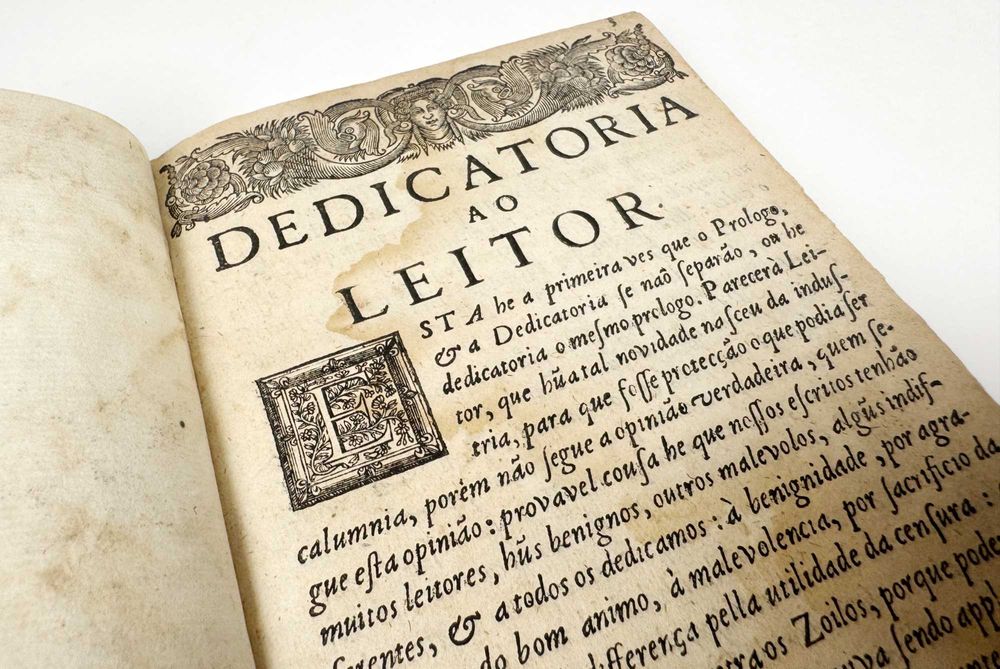 DEDICATORIA
AO
LEITOR.
ESTA he a primeira ves que o Prologo,
& a Dedicatoria se naõ separão, ou he
dedicatoria o mesmo prologo. Parecerà Lei-
tor, que hũa tal novidade nasceu da indus-
tria, para que fosse protecção o que podia ser
calumnia, porèm não segue a opinião verdadeira, quem se-
gue esta opinião: provavel cousa he que nossos escritos tenhão
muitos leitores, hũs benignos, outros malevolos, algũs indif-
ferentes, & a todos os dedicamos: à benignidade, por agra-
do bom animo, à malevolencia, por sacrificio da
differença pella utilidade da censura:
os Zoilos, porque
sendo